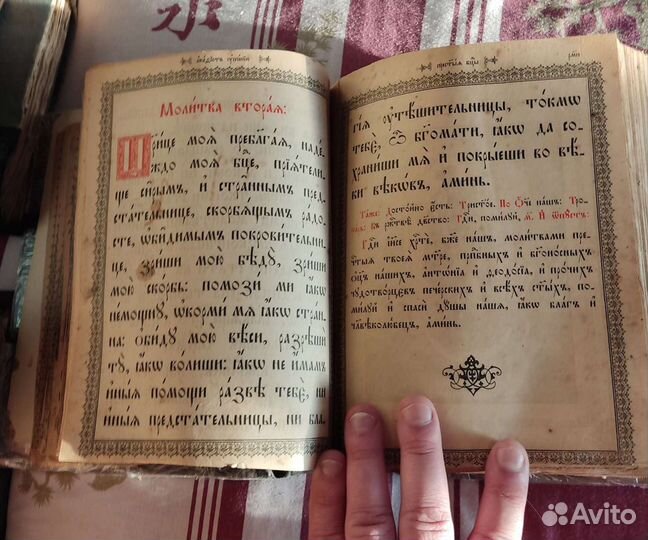 Моли́тва втора́ѧ:
Цр҃и́це моѧ̀ пребл҃га́ѧ, наде́-
ждо моѧ̀ бц҃е, прїѧ́тели-
ще си́рымъ, и҆ стра́ннымъ пред-
ста́тельнице, скорбѧ́щымъ ра́до-
сте, ѡ҆би́димымъ покрови́тельни-
це, зри́ши мою̀ бѣдꙋ̀, зри́ши
мою̀ ско́рбь: помози́ ми ꙗ҆́кѡ
не́мощнꙋ, ѡ҆корми́ мѧ ꙗ҆́кѡ стра́н-
на: ѻ҆би́дꙋ мою̀ вѣ́си, разрѣшѝ
тꙋ̀, ꙗ҆́кѡ во́лиши: ꙗ҆́кѡ не и҆́мамъ
и҆ны́ѧ по́мощи ра́звѣ тебє̀, ни
и҆ны́ѧ предста́тельницы, ни бл҃-
гі́ѧ ᲂу҆тѣ́шительницы, то́кмѡ
тебє̀, ѽ бг҃ома́ти, ꙗ҆́кѡ да со-
храни́ши мѧ̀ и҆ покры́еши во вѣ́-
ки вѣкѡ́въ, а҆ми́нь.
Та́же: Досто́йно є҆́сть: Трист҃о́е. По Ѻ҆́ч҃е на́шъ: Тро-
Гдⷭ҇и, поми́лꙋй, м҃. И҆ ѿпꙋ́стъ:
Гдⷭ҇и і҆и҃се хрⷭ҇тѐ, бж҃е на́шъ, моли́твами пре-
чⷭ҇тыѧ твоеѧ̀ мт҃ре, прпⷣбныхъ и҆ бг҃оно́сныхъ
ѻ҆тє́цъ на́шихъ, а҆нтѡ́нїа и҆ ѳеодо́сїа, и҆ про́чихъ
чꙋдотво́рцевъ пече́рскихъ и҆ всѣ́хъ ст҃ы́хъ, по-
ми́лꙋй и҆ спасѝ дꙋ́шы на́шѧ, ꙗ҆́кѡ бл҃гъ и҆
чл҃вѣколю́бецъ, а҆ми́нь.
Avito